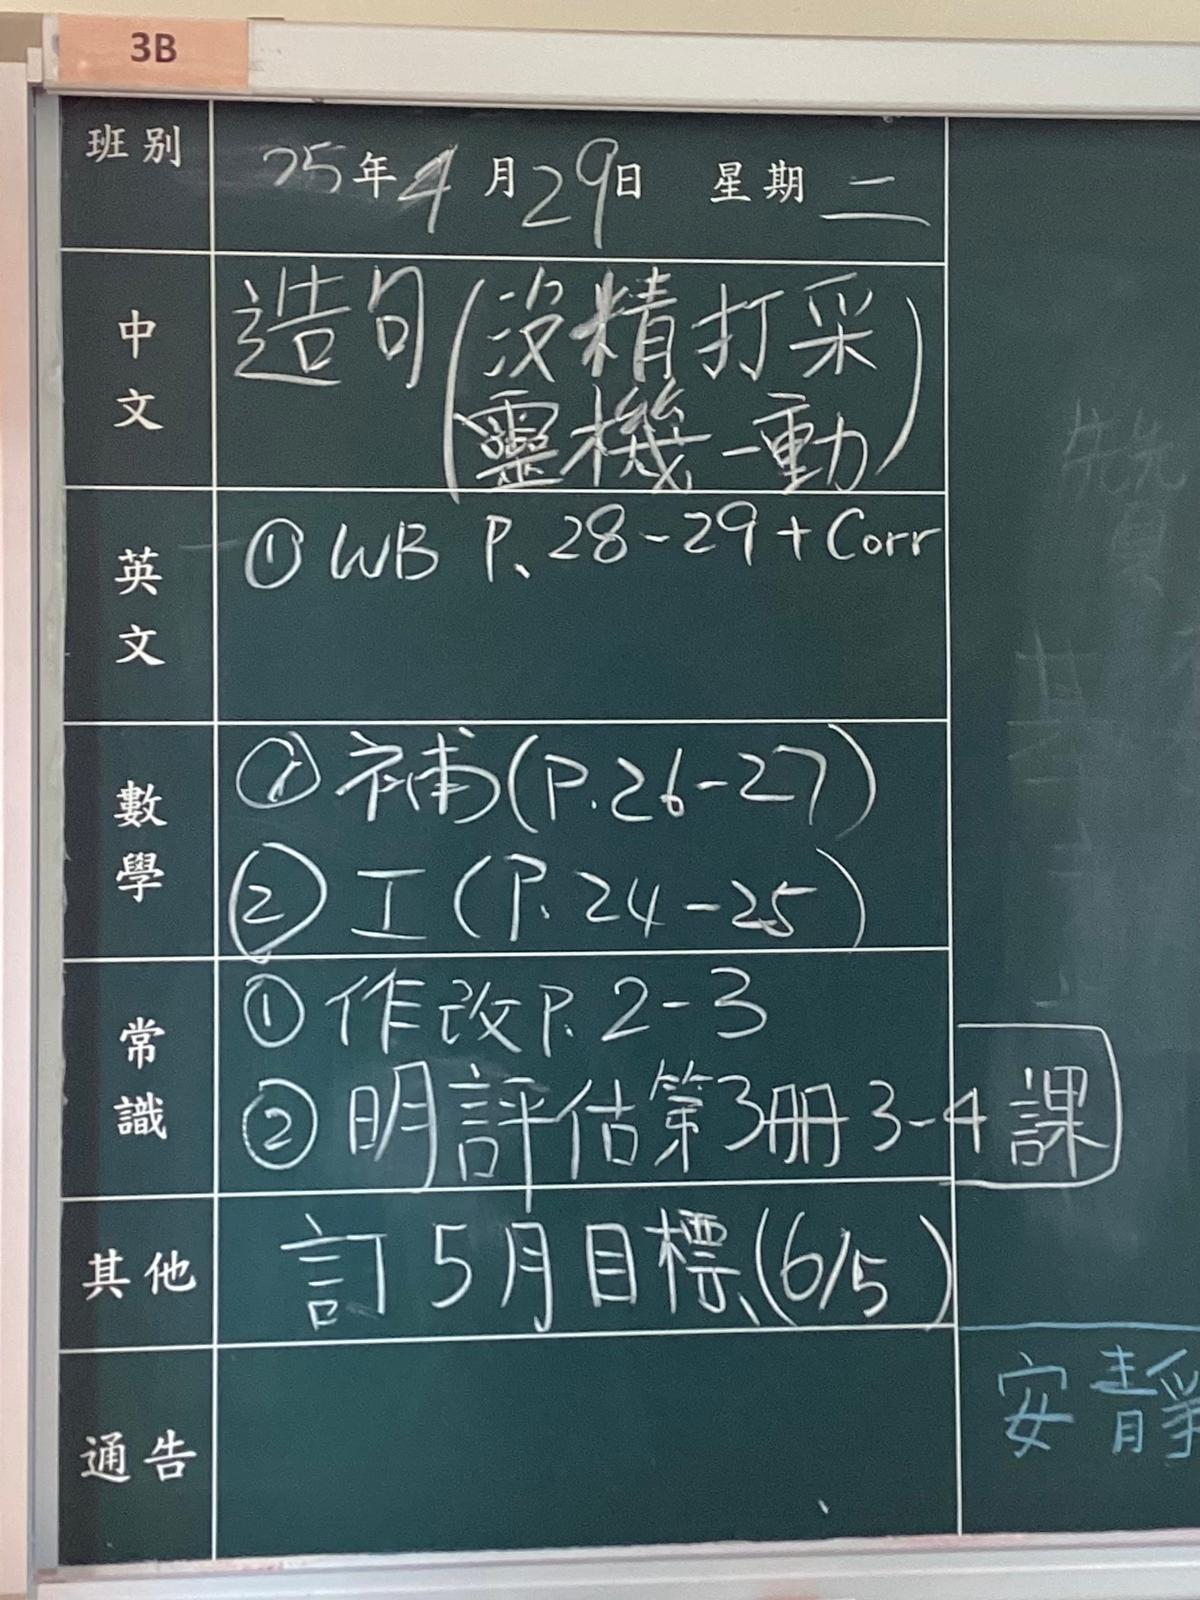 3B
班別 25年4月29日 星期二
中文 造句(沒精打采
靈機一動)
英文 ① WB P.28-29+Corr
數學 ① 補(P.26-27)
② 工(P.24-25)
常識 ① 作改P.2-3
② 明評估第3冊3-4課
其他 訂5月目標(6/5)
通告
安靜